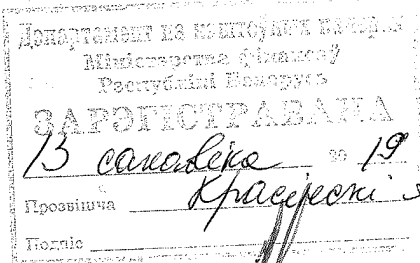 Дэпартамент па каштоўных паперах
Міністэрства фінансаў
Рэспублікі Беларусь
ЗАРЭГІСТРАВАНА
13 20 19
Прозвішча
Подпіс